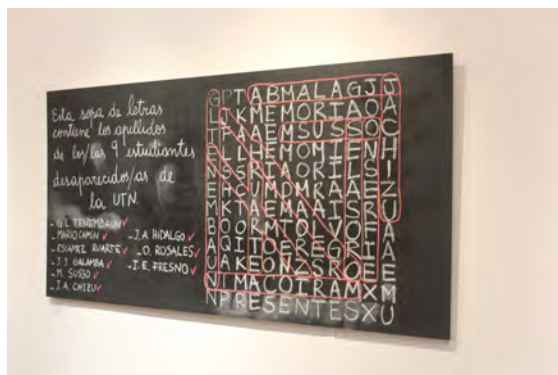 Esta sopa de letras
contiene los apellidos
de los/las 9 estudiantes
desaparecidos/as de
la UTN.
- G.L. TENEMBAUN ✓
- MARIO CAMIN ✓
- ESCAMEZ RUARTE ✓
- J.J. GALAMBA ✓
- M. SUSSO ✓
- J.A. CHIZU ✓
- J.A. HIDALGO ✓
- O. ROSALES ✓
- I.E. FRESNO ✓
GPTABMALAGJJ
LOKMEMORIAOA
TPAAEMSUSSOC
ELLHEMOMIENH
NSSRIAORILSI
EHCUMDMRAAEZ
MKTAEMAAISRU
BOORMTOLVOFA
AQITOEREGRIA
UAKEONZSROEE
NIMACOIRAMXM
NPRESENTESXU